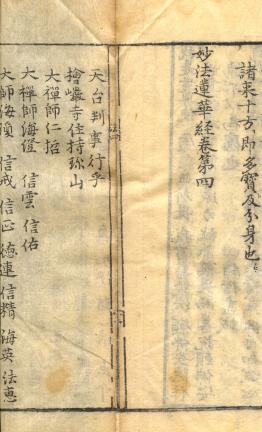 諸來十方、即多寶及分身也。
妙法蓮華経卷第四
天台判事行乎
檜巖寺住持珎山
大禪師仁哲
大禪師海澄 信雲 信佑
大師海須 信戒 信正 德連 信精 海英 法恵